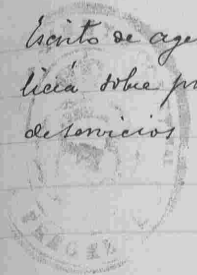 Escrito de age
licía sobre pr
de servicios